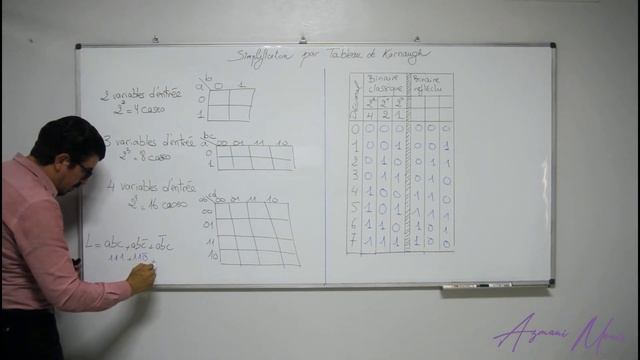 Simplification par Tableau de Karnaugh
2 variables d'entrée
2² = 4 cases
b
a 0 1
0
1
3 variables d'entrée
2³ = 8 cases
bc
a 00 01 11 10
0
1
4 variables d'entrée
2⁴ = 16 cases
cd
ab 00 01 11 10
00
01
11
10
L = abc + abc̄ + āb̄c
111 + 110 +
Décimal
Binaire classique
Binaire réfléchi
2² 2¹ 2⁰
4 2 1
0 0 0 0 0 0 0
1 0 0 1 0 0 1
2 0 1 0 0 1 1
3 0 1 1 0 1 0
4 1 0 0 1 1 0
5 1 0 1 1 1 1
6 1 1 0 1 0 1
7 1 1 1 1 0 0
Azmani